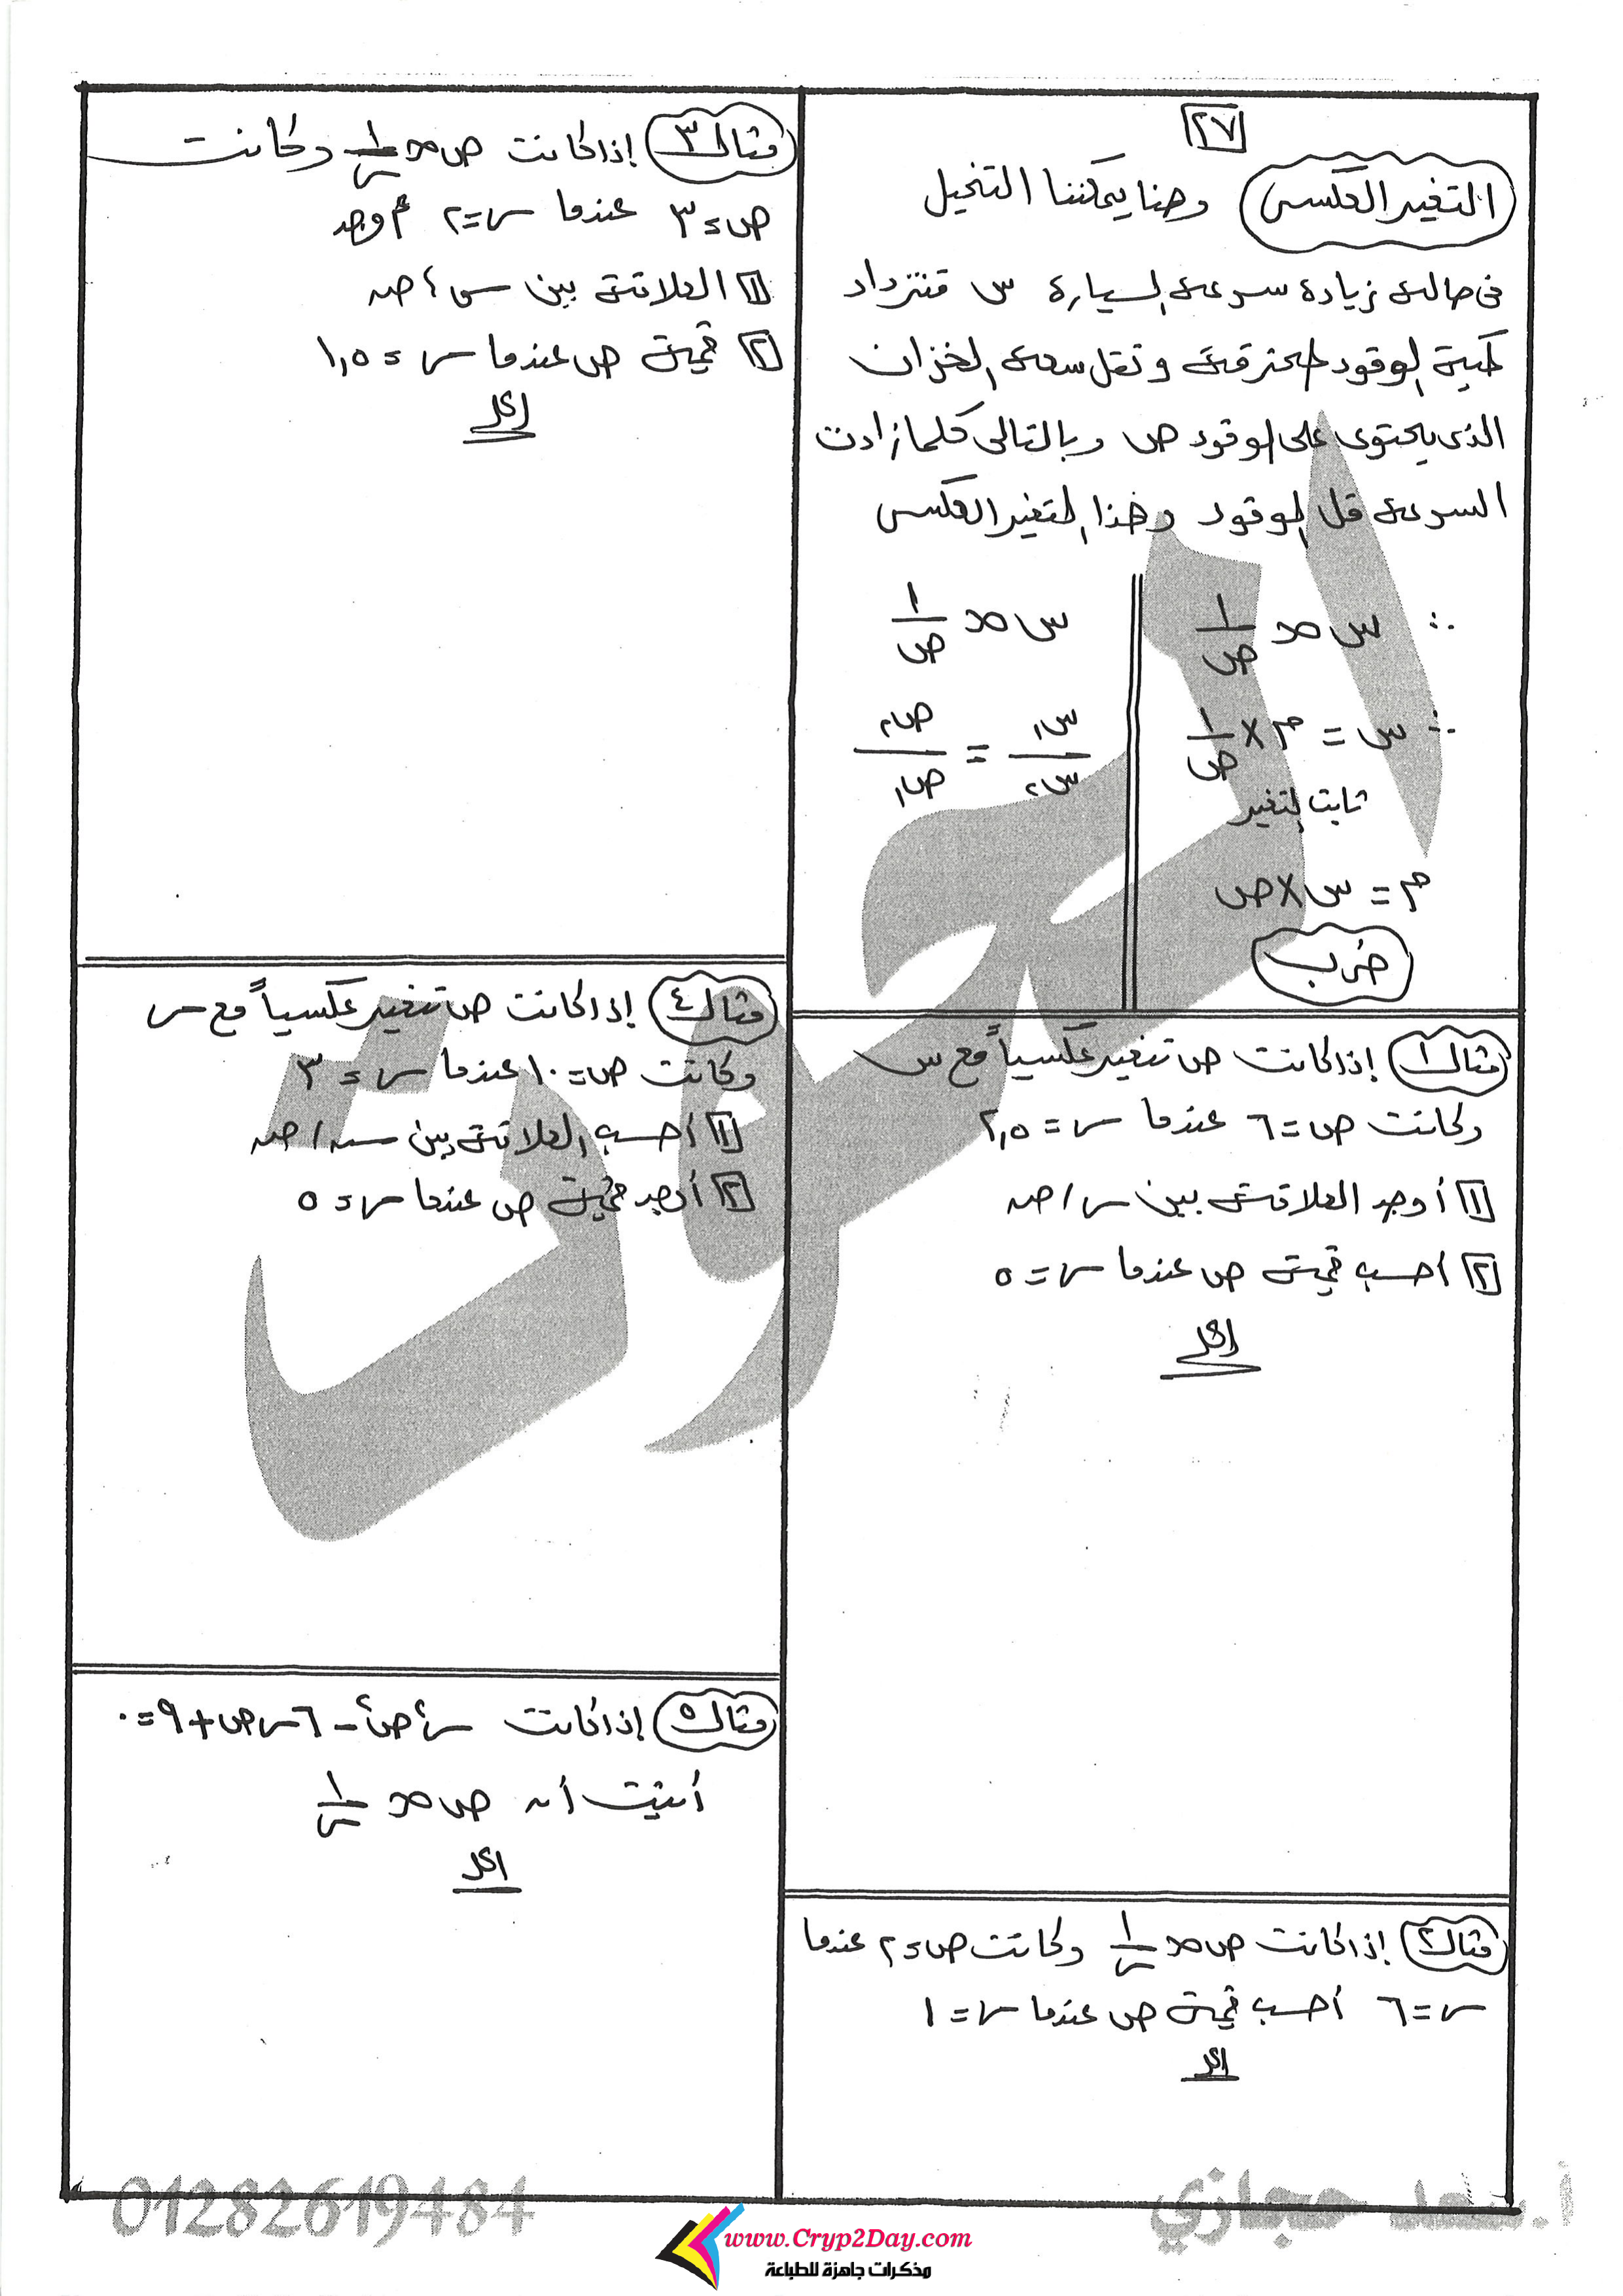 ٢٧
التغير العكسى وهنا يمكننا التخيل
فى حالة زيادة سرعة السيارة س فتزداد
كمية الوقود المحترقة وتقل سعة الخزان
الذى يحتوى على الوقود ص وبالتالى كلما زادت
السرعة قل الوقود وهذا التغير العكسى
∴ س ∝ ١/ص
∴ س = م × ١/ص
ثابت التغير
م = س × ص
ضرب
س ∝ ١/ص
س١/س٢ = ص٢/ص١
مثال ١ إذا كانت ص تتغير عكسياً مع س
وكانت ص = ٦ عندما س = ٢,٥
١ أوجد العلاقة بين س ، ص
٢ احسب قيمة ص عندما س = ٥
الحل
مثال ٢ إذا كانت ص ∝ ١/س وكانت ص = ٢ عندما
س = ٦ أحسب قيمة ص عندما س = ١
الحل
مثال ٣ إذا كانت ص ∝ ١/س وكانت
ص = ٣ عندما س = ٢ أوجد
١ العلاقة بين س ، ص
٢ قيمة ص عندما س = ١,٥
الحل
مثال ٤ إذا كانت ص تتغير عكسياً مع س
وكانت ص = ١٠ عندما س = ٣
١ أحسب العلاقة بين س ، ص
٢ أوجد قيمة ص عندما س = ٥
مثال ٥ إذا كانت س٢ص٢ - ٦س ص + ٩ = ٠
أثبت أن ص ∝ ١/س
الحل
01282619484
أ. سعد حجازي
www.Cryp2Day.com
مذكرات جاهزة للطباعة